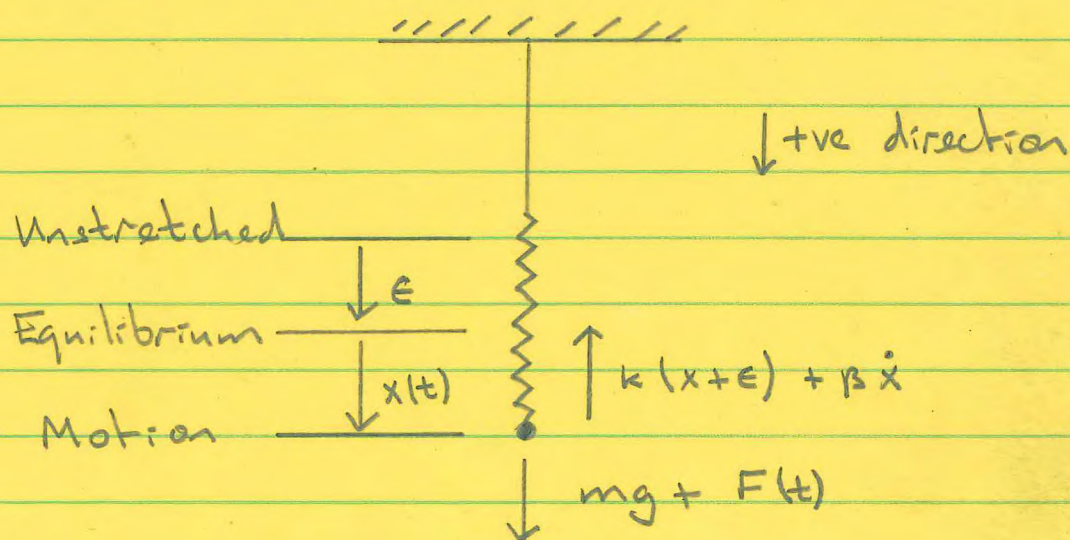 +ve direction
Unstretched
ϵ
Equilibrium
x(t)
k(x+ϵ) + βẋ
Motion
mg + F(t)